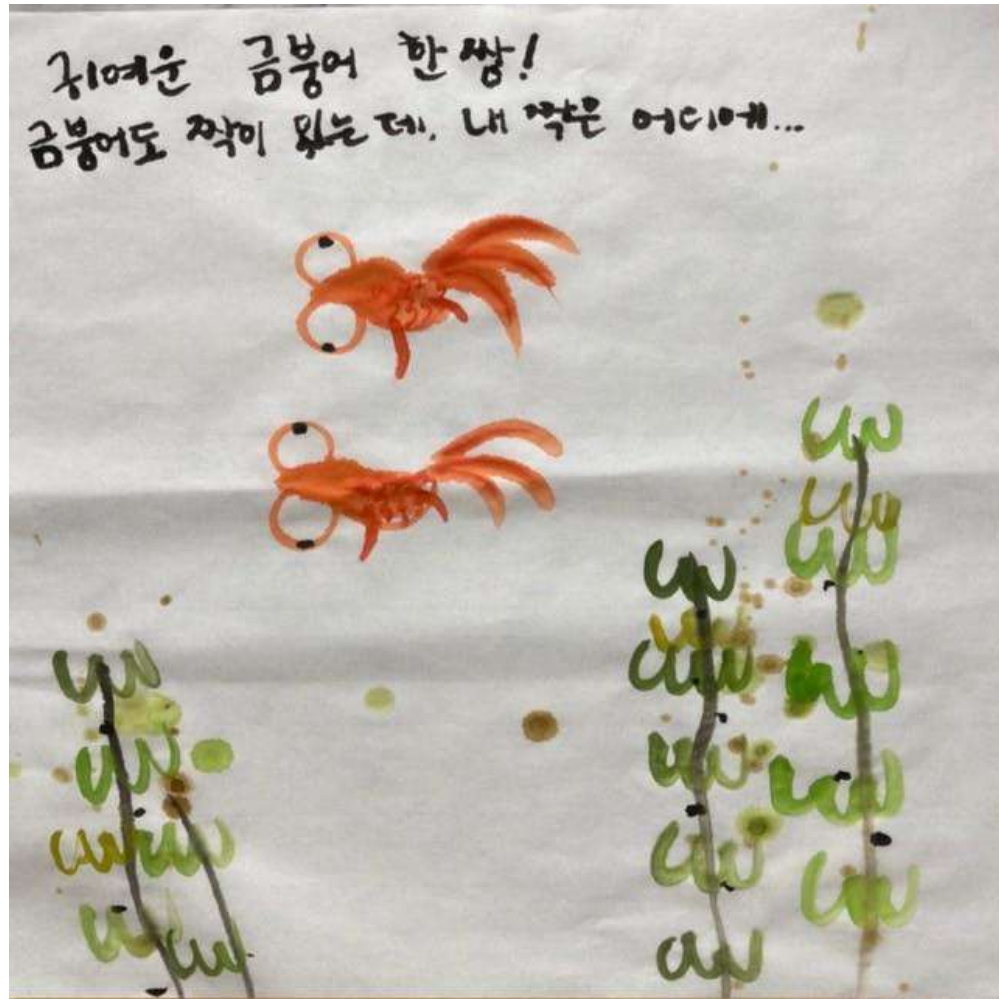 귀여운 금붕어 한 쌍!
금붕어도 짝이 있는데, 내 짝은 어디에...